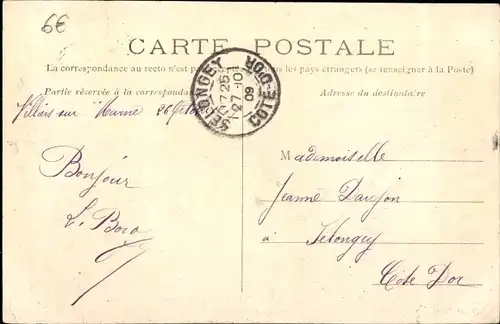 6€
CARTE POSTALE
La correspondance au recto n'est pas les pays étrangers (se renseigner à la Poste)
Partie réservée à la correspondance
Adresse du destinataire
SELONGEY
17 25
27-10
09
COTE-D'OR
Villiers sur Marne 26
Bonjour
L. Bora
Mademoiselle
Jeanne
à Selongey
Cote D'or